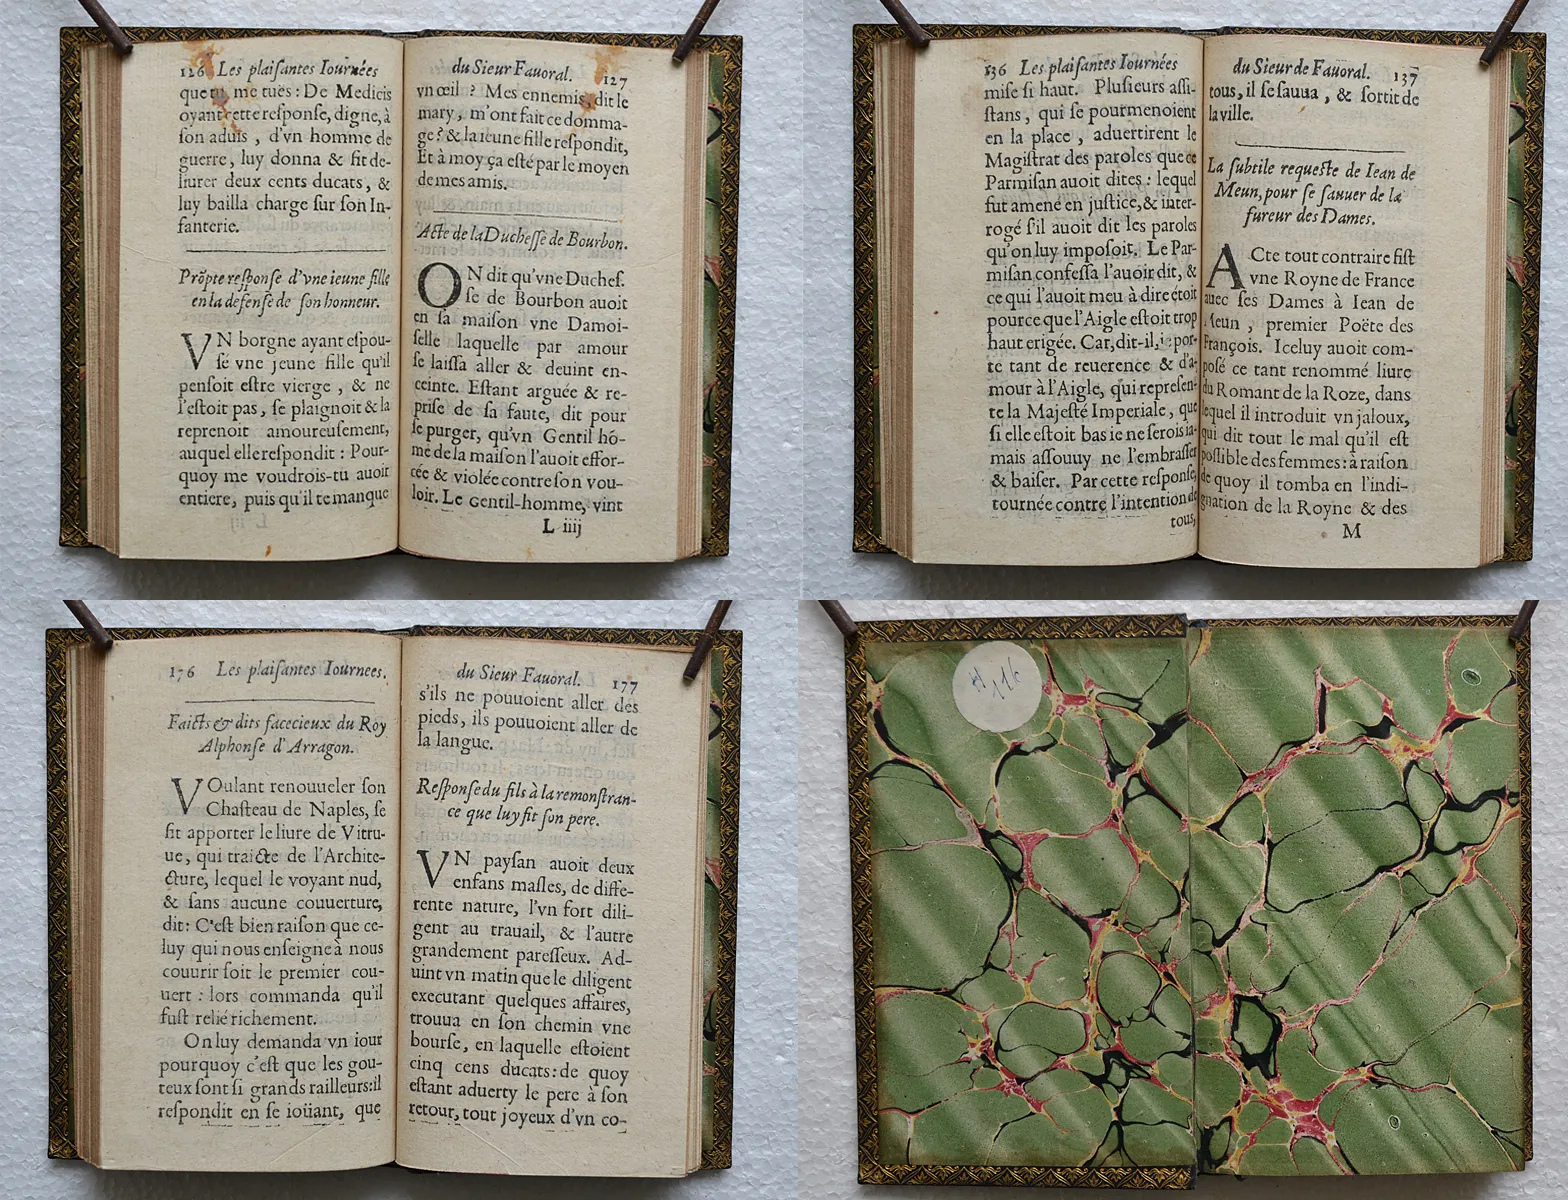 126 Les plaiſantes Iournées
que tu me tues : De Medicis
oyant cette reſponſe, digne, à
ſon aduis, d'vn homme de
guerre, luy donna & fit de-
liurer deux cents ducats, &
luy bailla charge ſur ſon In-
fanterie.
Prōpte reſponſe d'vne ieune fille
en la defenſe de ſon honneur.
VN borgne ayant eſpou-
ſé vne jeune fille qu'il
penſoit eſtre vierge, & ne
l'eſtoit pas, ſe plaignoit & la
reprenoit amoureuſement,
auquel elle reſpondit : Pour-
quoy me voudrois-tu auoir
entiere, puis qu'il te manque
du Sieur Fauoral. 127
vn œil ? Mes ennemis, dit le
mary, m'ont fait ce domma-
ge? & la ieune fille reſpondit,
Et à moy ça eſté par le moyen
de mes amis.
Acte de la Ducheſſe de Bourbon.
ON dit qu'vne Ducheſ-
ſe de Bourbon auoit
en ſa maiſon vne Damoi-
ſelle laquelle par amour
ſe laiſſa aller & deuint en-
ceinte. Eſtant arguée & re-
priſe de ſa faute, dit pour
ſe purger, qu'vn Gentil hō-
me de la maiſon l'auoit effor-
cée & violée contre ſon vou-
loir. Le Gentil-homme, vint
L iiij
136 Les plaiſantes Iournées
miſe ſi haut. Pluſieurs aſſi-
ſtans, qui ſe pourmenoient
en la place, aduertirent le
Magiſtrat des paroles que ce
Parmiſan auoit dites : lequel
fut amené en juſtice, & inter-
rogé s'il auoit dit les paroles
qu'on luy impoſoit. Le Par-
miſan confeſſa l'auoir dit, &
ce qui l'auoit meu à dire etoit
pource que l'Aigle eſtoit trop
haut erigée. Car, dit-il, i'e por-
te tant de reuerence & d'a-
mour à l'Aigle, qui repreſen-
te la Majeſté Imperiale, que
ſi elle eſtoit bas ie ne ſerois ia-
mais aſſouuy de l'embraſſer
& baiſer. Par cette reſponſe
tournée contre l'intention de
tous,
du Sieur de Fauoral. 137
tous, il ſe ſauua, & ſortit de
la ville.
La ſubtile requeſte de Iean de
Meun, pour ſe ſauuer de la
fureur des Dames.
ACte tout contraire fiſt
vne Royne de France
auec ſes Dames à Iean de
Meun, premier Poëte des
François. Iceluy auoit com-
poſé ce tant renommé liure
du Romant de la Roze, dans
lequel il introduit vn jaloux,
qui dit tout le mal qu'il eſt
poſſible des femmes : à raiſon
de quoy il tomba en l'indi-
gnation de la Royne & des
M
176 Les plaiſantes Iournees.
Faicts & dits facecieux du Roy
Alphonſe d'Arragon.
VOulant renouueler ſon
Chaſteau de Naples, ſe
fit apporter le liure de Vitru-
ue, qui traicte de l'Archite-
cture, lequel le voyant nud,
& ſans aucune couuerture,
dit : C'eſt bien raiſon que ce-
luy qui nous enſeigne à nous
couurir ſoit le premier cou-
uert : lors commanda qu'il
fuſt relié richement.
On luy demanda vn iour
pourquoy c'eſt que les gou-
teux ſont ſi grands railleurs: il
reſpondit en ſe ioüant, que
du Sieur Fauoral. 177
s'ils ne pouuoient aller des
pieds, ils pouuoient aller de
la langue.
Reſponſe du fils à la remonſtran-
ce que luy fit ſon pere.
VN payſan auoit deux
enfans maſles, de diffe-
rente nature, l'vn fort dili-
gent au trauail, & l'autre
grandement pareſſeux. Ad-
uint vn matin que le diligent
executant quelques affaires,
trouua en ſon chemin vne
bourſe, en laquelle eſtoient
cinq cens ducats: de quoy
eſtant aduerty le pere à ſon
retour, tout joyeux d'vn co-